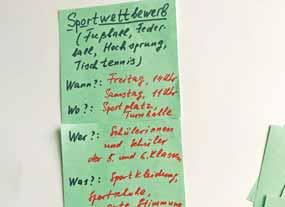 Sportwettbewerb
(Fußball, Feder-
ball, Hochsprung,
Tischtennis)
Wann?: Freitag, 14 Uhr
Samstag, 11 Uhr
Wo?: Sportplatz,
Turnhalle
Wer?: Schülerinnen
und Schüler
der 5. und 6. Klassen
Was?: Sportkleidung,
Sportschuhe,
gute Stimmung